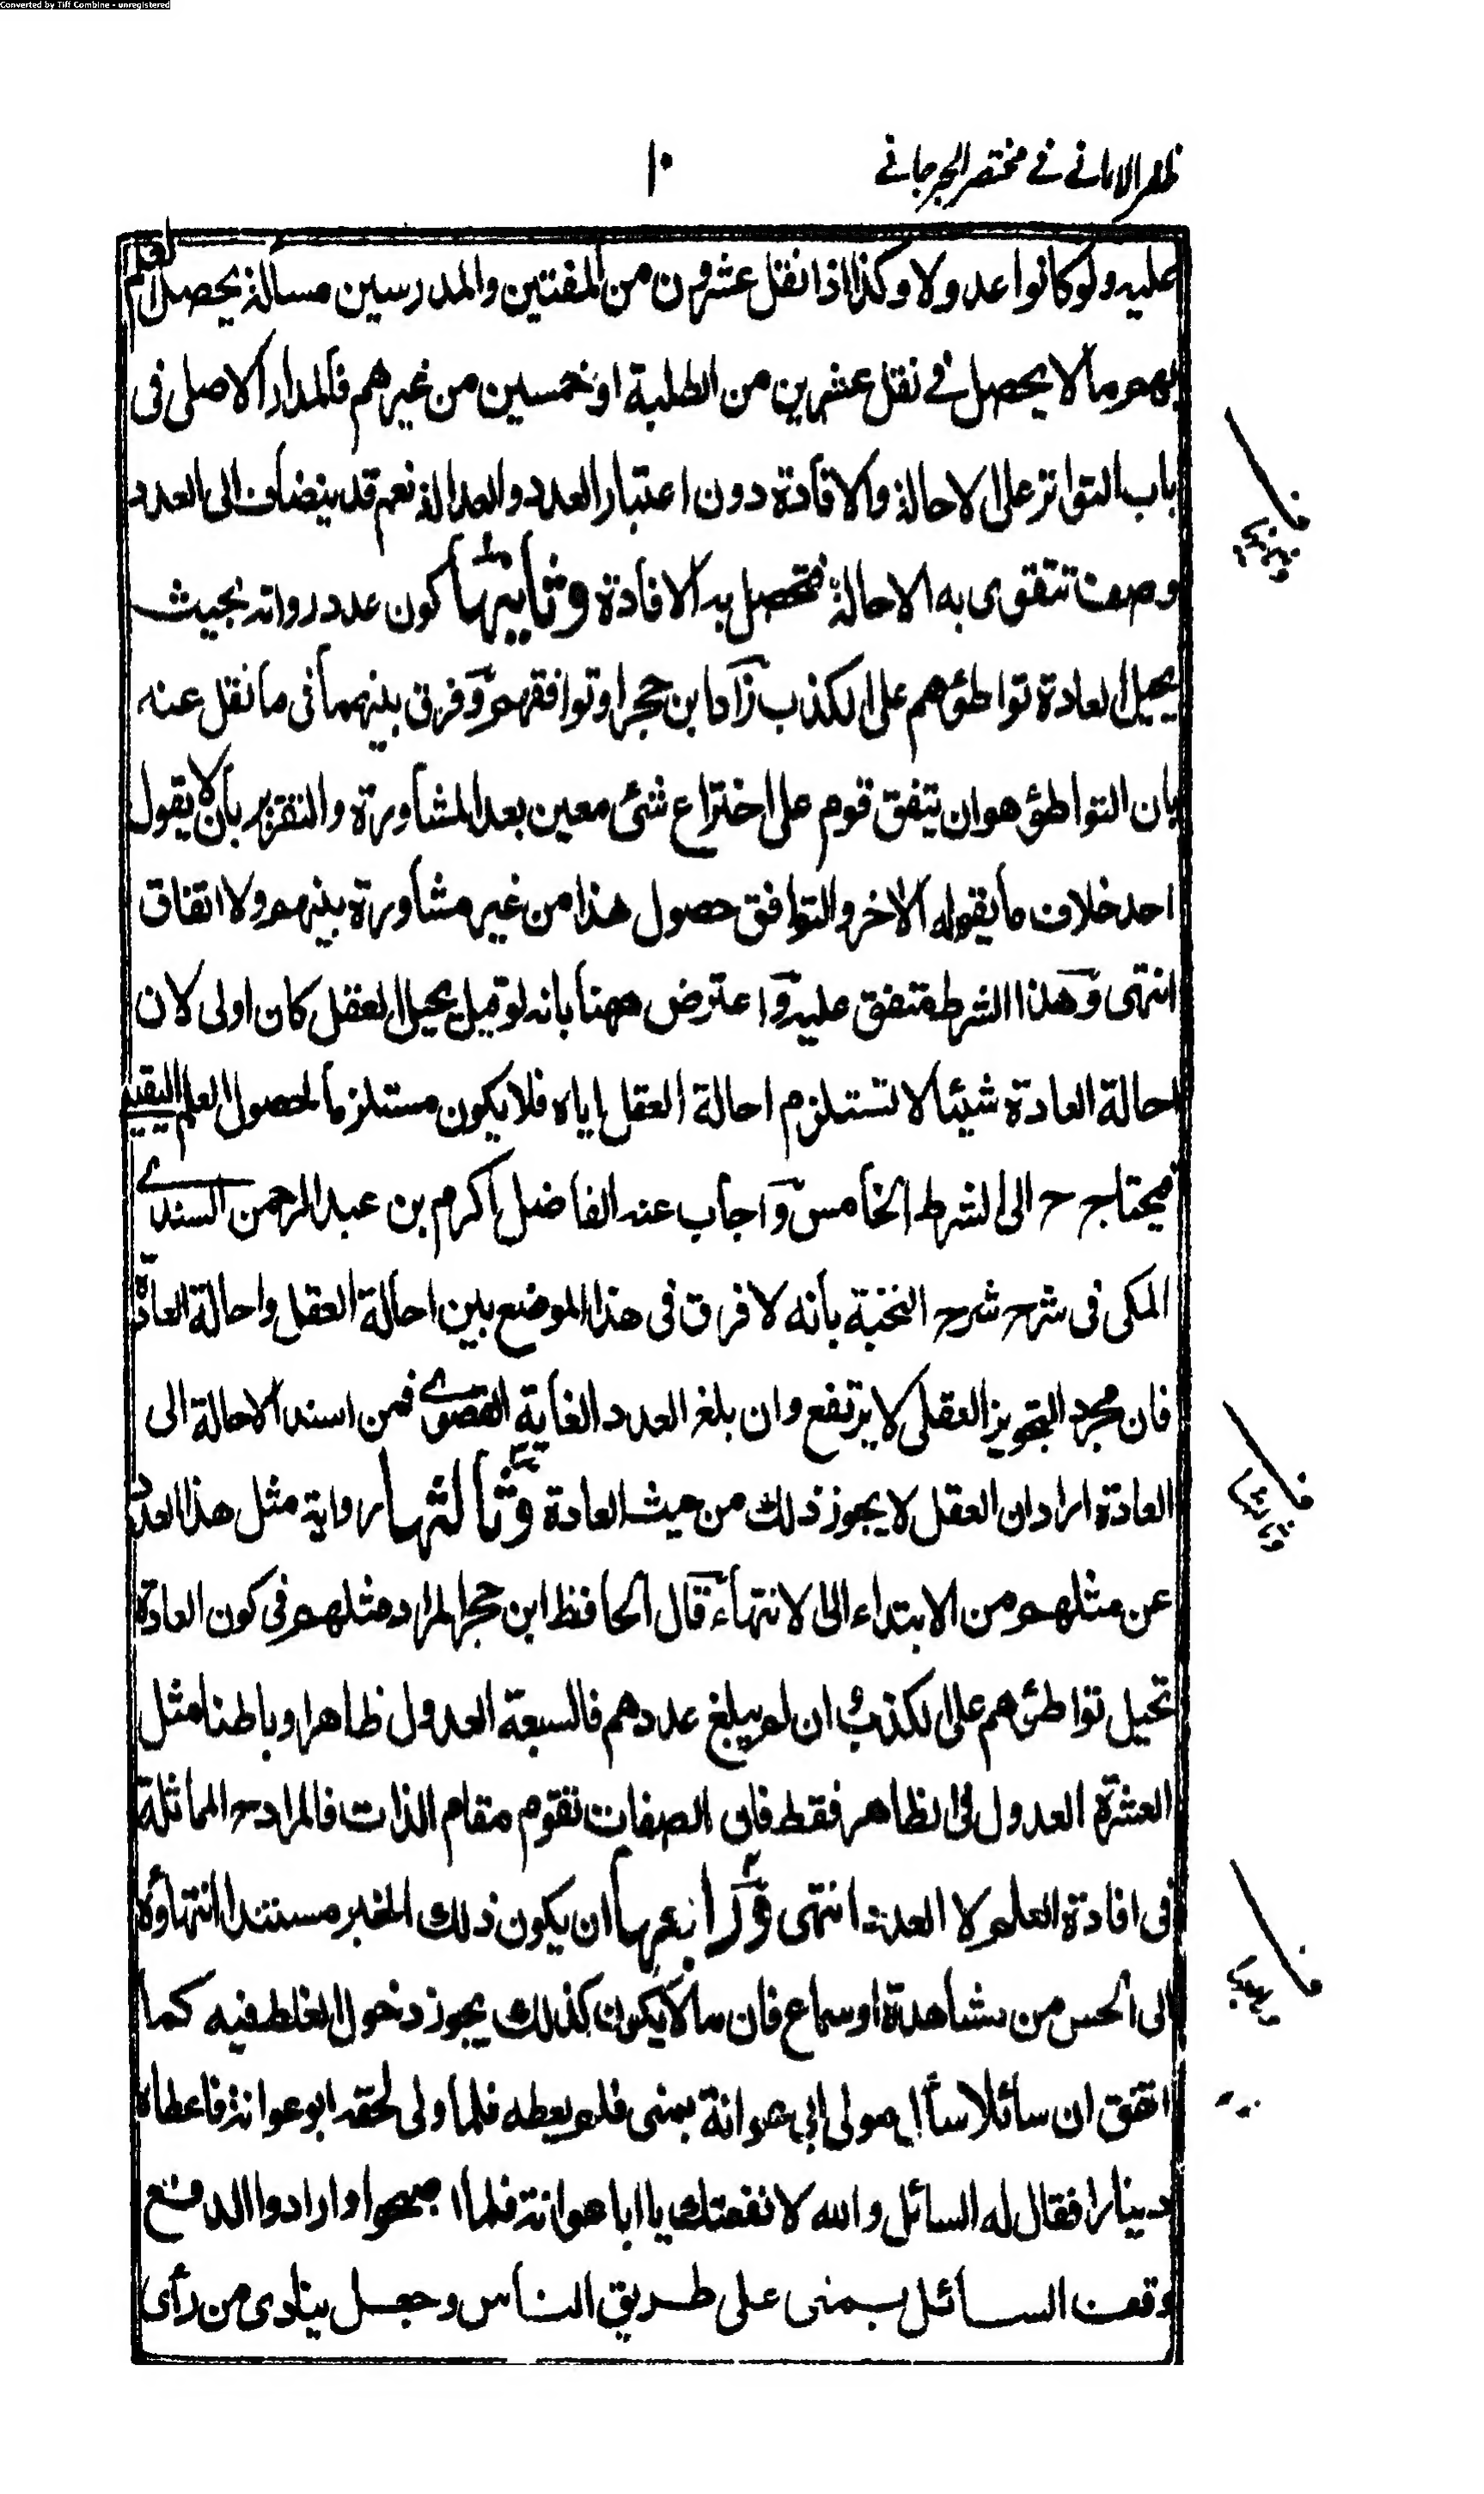 Converted by Tiff Combine - unregistered
ظفر الامانی فی مختصر الجرجانی
۱۰
علیه ولو کانوا عدولا وکذا اذا نقل عشرون من المفتین والمدرسین مسألة یحصل العلم
بهم ما لا یحصل فی نقل عشرین من الطلبة او خمسین من غیرهم فالمدار الاصلی فی
باب التواتر علی الاحالة والافادة دون اعتبار العدد والعدالة نعم قد ینضاف الی العدد
وصف تتقوی به الاحالة فتحصل به الافادة وثانیتها کون عدد رواته بحیث
یحیل العادة تواطئوهم علی الکذب زاد ابن حجر او توافقهم وفرق بینهما فی ما نقل عنه
بان التواطؤ هو ان یتفق قوم علی اختراع شئ معین بعد المشاورة والتقریر بان لا یقول
احد خلاف ما یقوله الاخر والتوافق حصول هذا من غیر مشاورة بینهم ولا اتفاق
انتهی وهذا الشرط متفق علیه واعترض ههنا بانه لو قیل یحیل العقل کان اولی لان
احالة العادة شیئا لا تستلزم احالة العقل ایاه فلا یکون مستلزما لحصول العلم الیقینی
فیحتاج ح الی الشرط الخامس واجاب عنه الفاضل اکرم بن عبد الرحمن السندی
المکی فی شرح شرح النخبة بانه لا فرق فی هذا الموضع بین احالة العقل واحالة العادة
فان مجرد التجویز العقلی لا یرتفع وان بلغ العدد الغایة القصوی فمن اسند الاحالة الی
العادة اراد ان العقل لا یجوز ذلك من حیث العادة وثالثتها روایة مثل هذا العدد
عن مثلهم من الابتداء الی الانتهاء قال الحافظ ابن حجر المراد مثلهم فی کون العادة
تحیل تواطئهم علی الکذب وان لم یبلغ عددهم فالسبعة العدول ظاهرا وباطنا مثل
العشرة العدول فی الظاهر فقط فان الصفات تقوم مقام الذات فالمراد ح المماثلة
فی افادة العلم لا العدد انتهی ورابعها ان یکون ذلك الخبر مستندا انتهاؤه
الی الحس من مشاهدة او سماع فان ما لا یکون کذلك یجوز دخول الغلط فیه کما
اتفق ان سائلا سأل مولی ابی عوانة بمنی فلم یعطه فلما ولی لحقه ابو عوانة فاعطاه
دینارا فقال له السائل والله لانفعنك یا ابا عوانة فلما اصبحوا وارادوا الدفع
وقف السائل بمنی علی طریق الناس وجعل ینادی من رأی